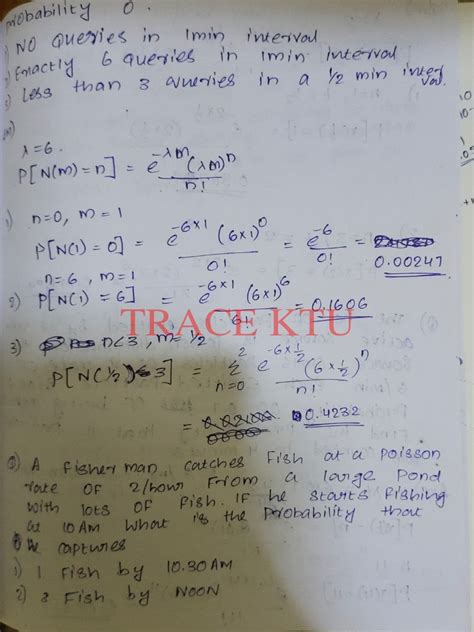 Probability of
1) NO Queries in 1min interval
2) Exactly 6 Queries in 1min interval
3) Less than 3 Queries in a 1/2 min interval.
λ=6.
P[N(m)=n] = e^-λm (λm)^n / n!
1) n=0, m=1
P[N(1)=0] = e^-6×1 (6×1)^0 / 0! = e^-6 / 0! = 0.00247
n=6, m=1
2) P[N(1)=6] = e^-6×1 (6×1)^6 / 6! = 0.1606
TRACE KTU
3) n<3, m=1/2
P[N(1/2)<3] = Σ n=0 2 e^-6×1/2 (6×1/2)^n / n!
= 0.4232
A Fisherman catches Fish at a Poisson
rate of 2/hour From a large Pond
with lots of Fish. IF he starts Fishing
at 10AM what is the Probability that
he captures
1) 1 Fish by 10.30AM
2) 3 Fish by NOON